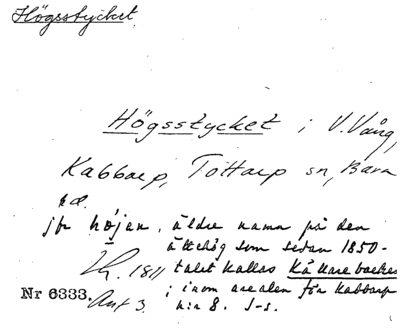 Högsstycket
Högsstycket i V. Vång,
Kabbarp, Tottarp sn, Bara
hd.
jfr höjan, äldre namn på den
ättehög som sedan 1850-
talet kallas Källarebacken
i inom arealen för Kabbarp
n:r 8. J-s.
Lh. 1811
Nr 6333. Ant 3.